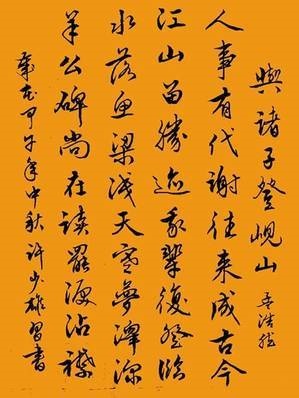 與諸子登峴山 孟浩然
人事有代謝往来成古今
江山留勝迹我輩復登臨
水落魚梁浅天寒夢澤深
羊公碑尚在读罷淚沾襟
歲在甲午年中秋许少雄習書